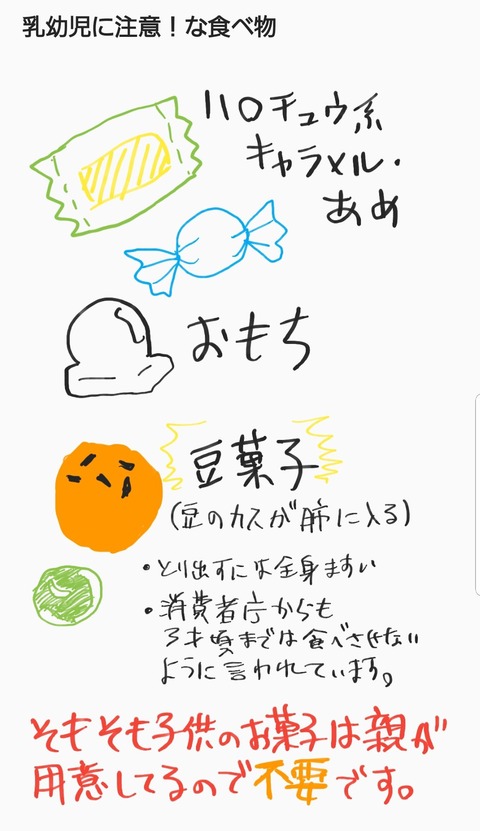 乳幼児に注意！な食べ物
ハロチュウ系
キャラメル・
あめ
おもち
豆菓子
(豆のカスが肺に入る)
・とり出すには全身ますい
・消費者庁からも
3才頃までは食べさせない
ように言われています。
そもそも子供のお菓子は親が
用意してるので不要です。